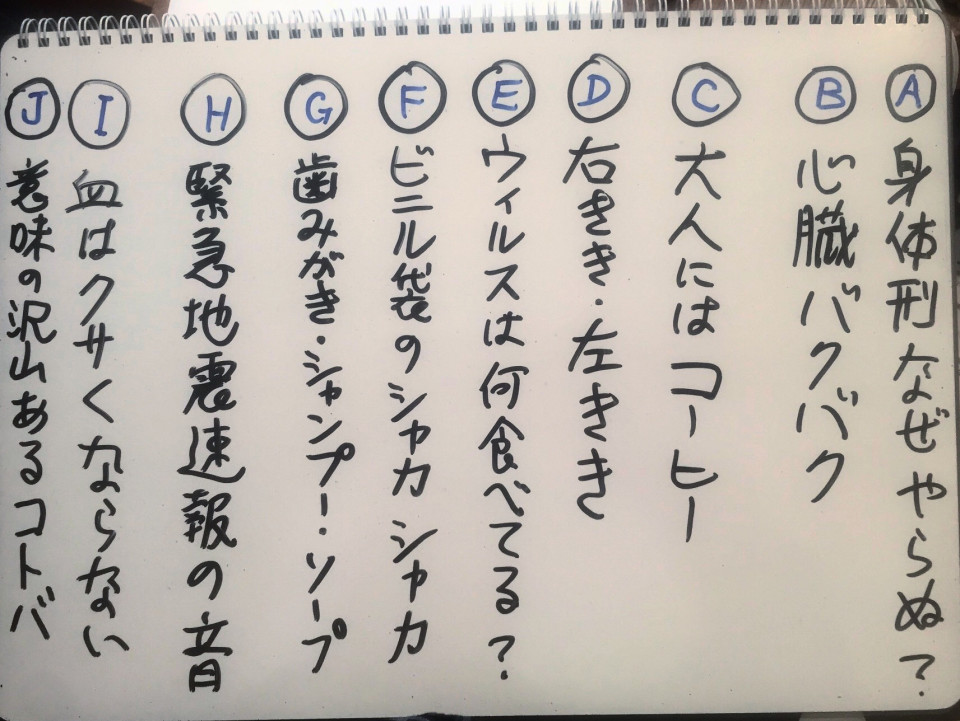 A 身体刑なぜやらぬ?
B 心臓バクバク
C 大人にはコーヒー
D 右きき・左きき
E ウィルスは何食べてる?
F ビニル袋のシャカシャカ
G 歯みがき・シャンプー・ソープ
H 緊急地震速報の音
I 血はクサくならない
J 意味の沢山あるコトバ